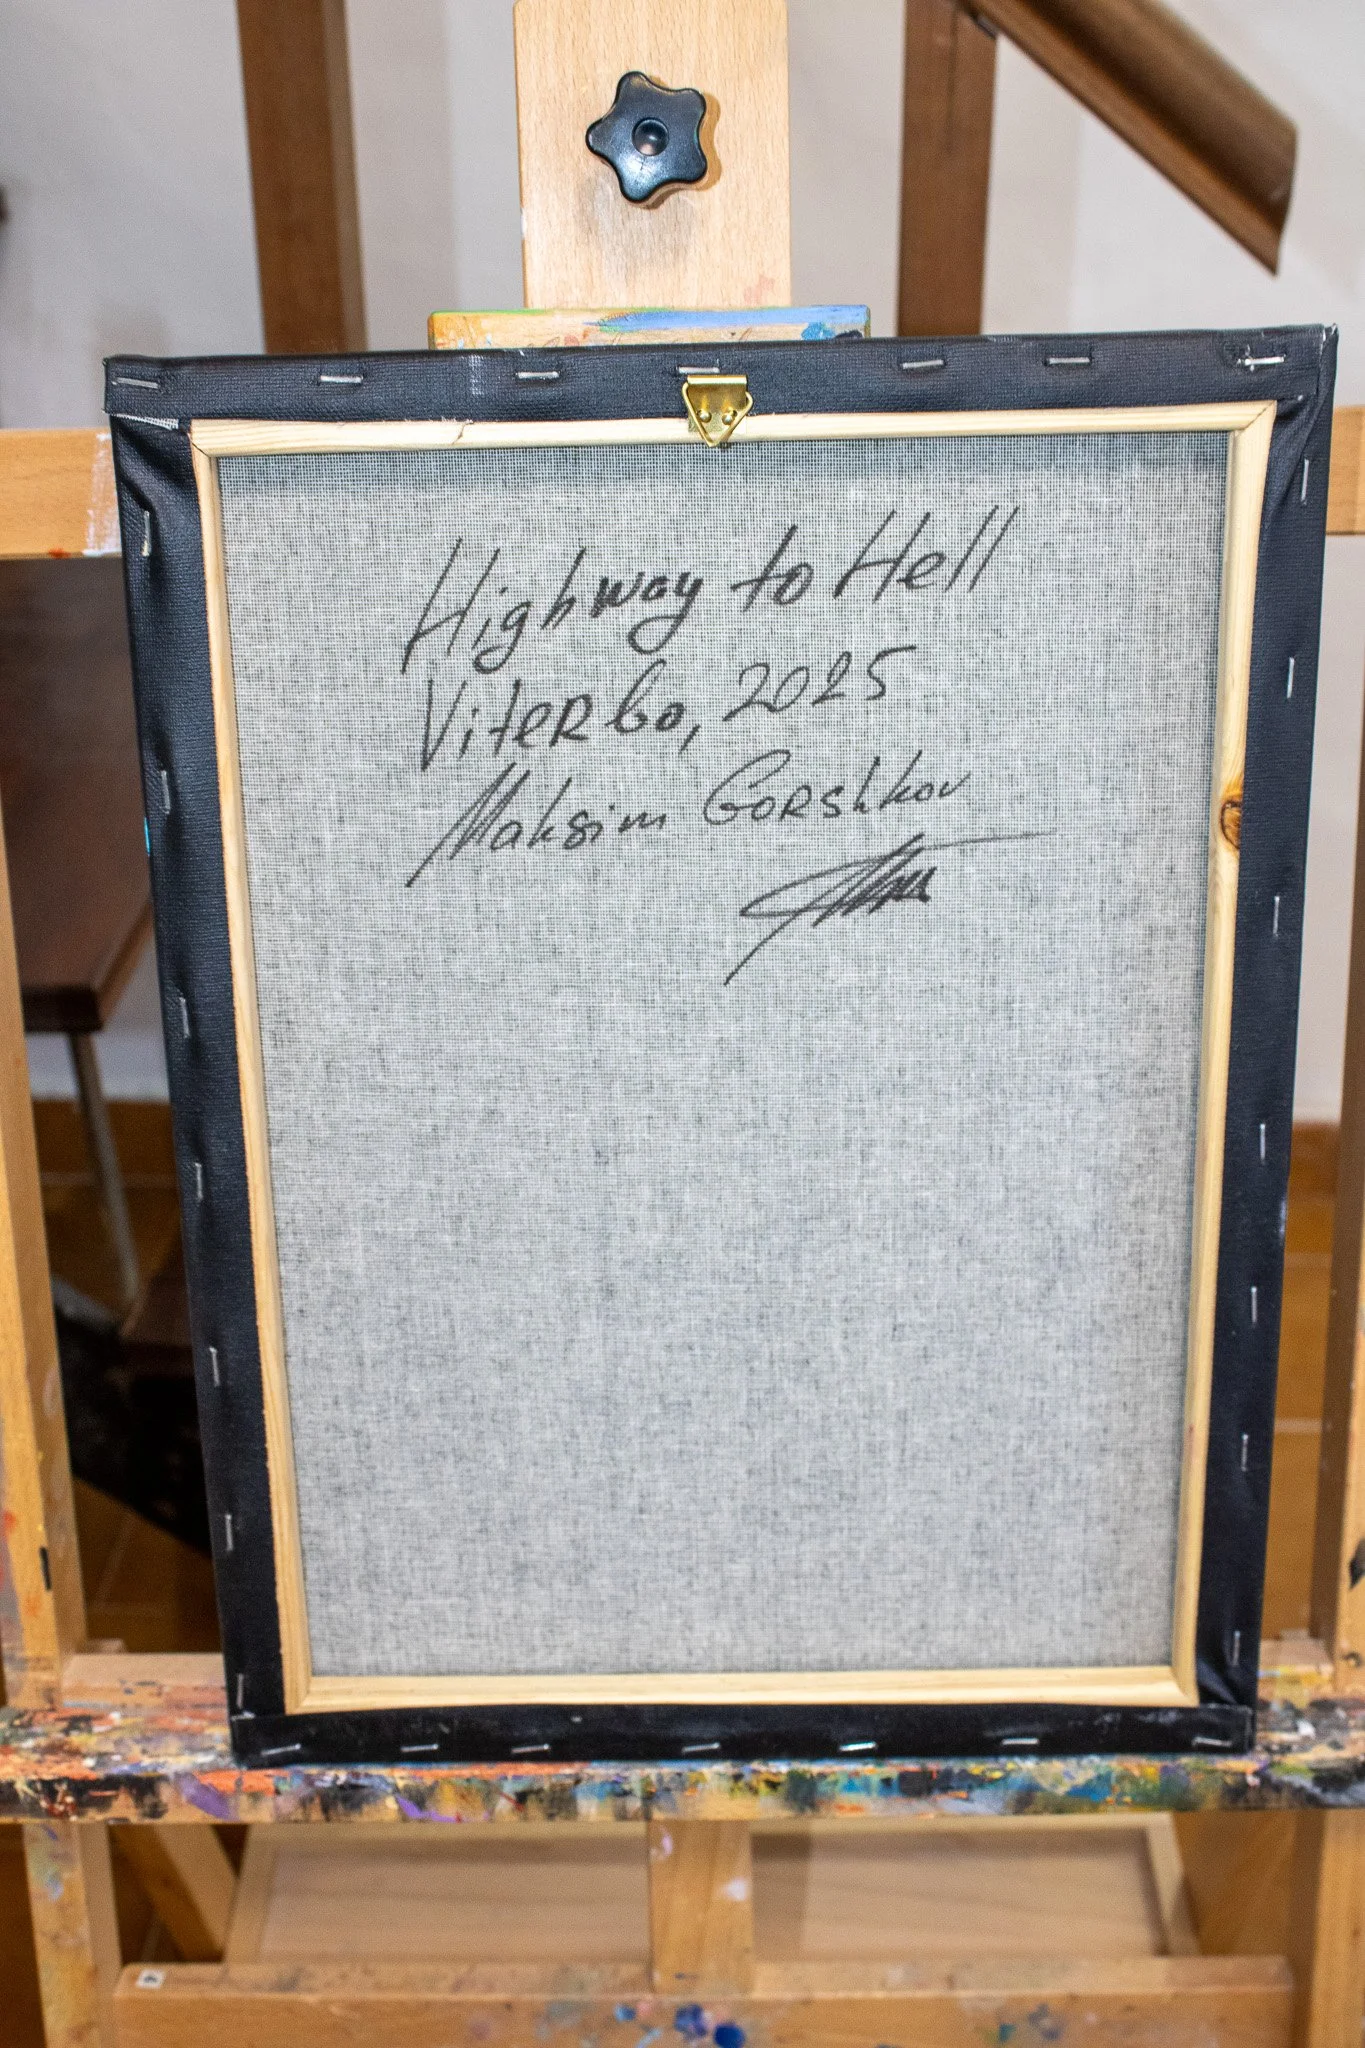 Highway to Hell
Viterbo, 2025
Maksim Gorshkov